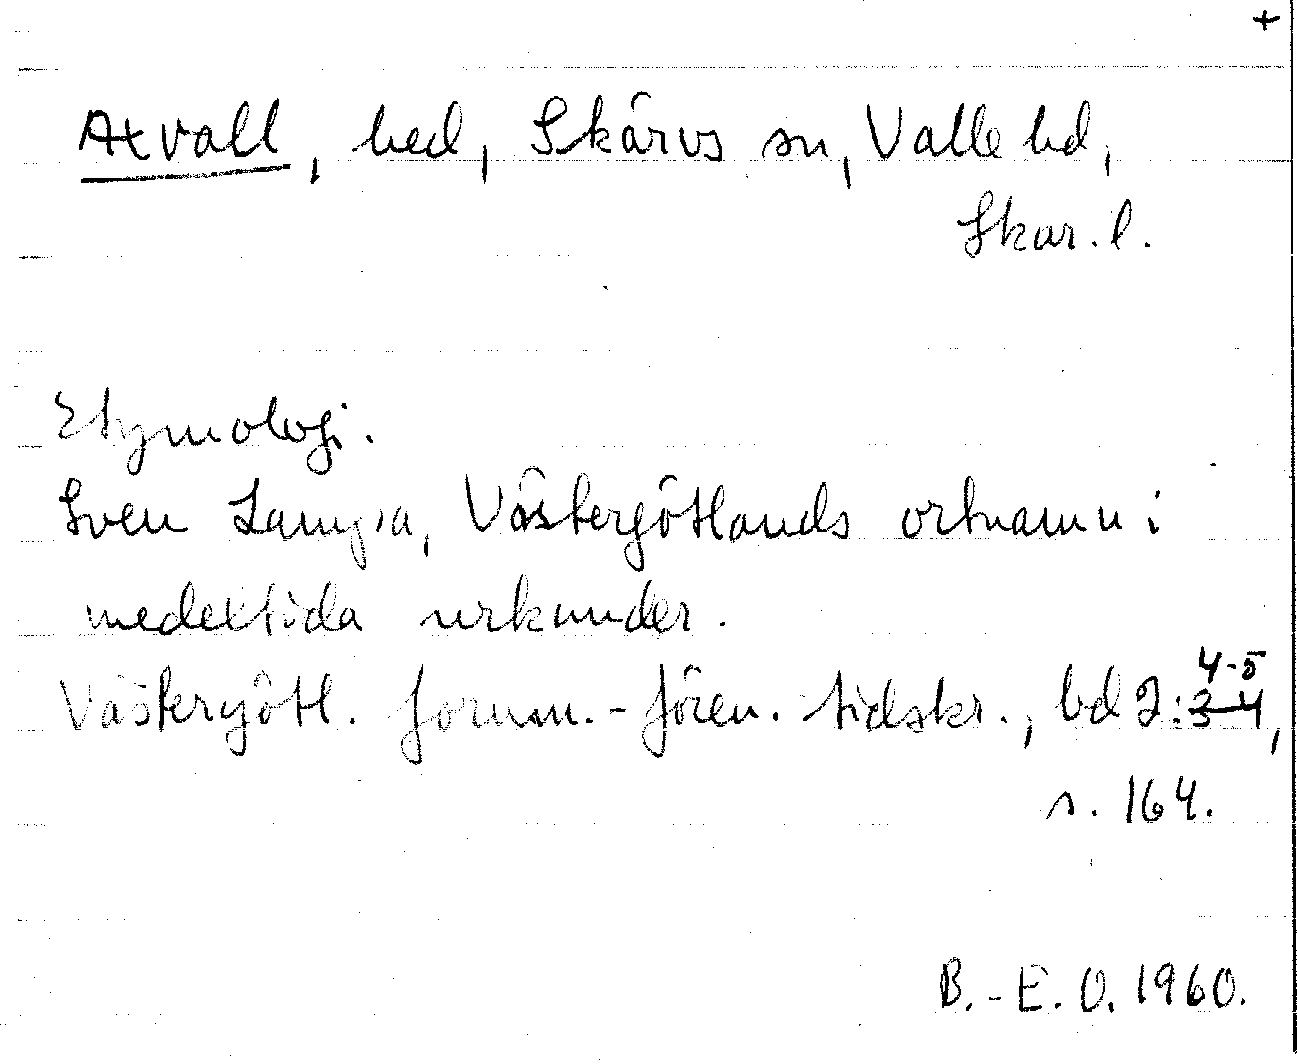 +
Axvall, hed, Skärvs sn, Valle hd,
Skar. l.
Etymologi.
Sven Lampa, Västergötlands ortnamn i
medeltida urkunder.
Västergötl. fornm.-fören. tidskr., bd 2:3-4,
4-5
s. 164.
B.-E. O. 1960.